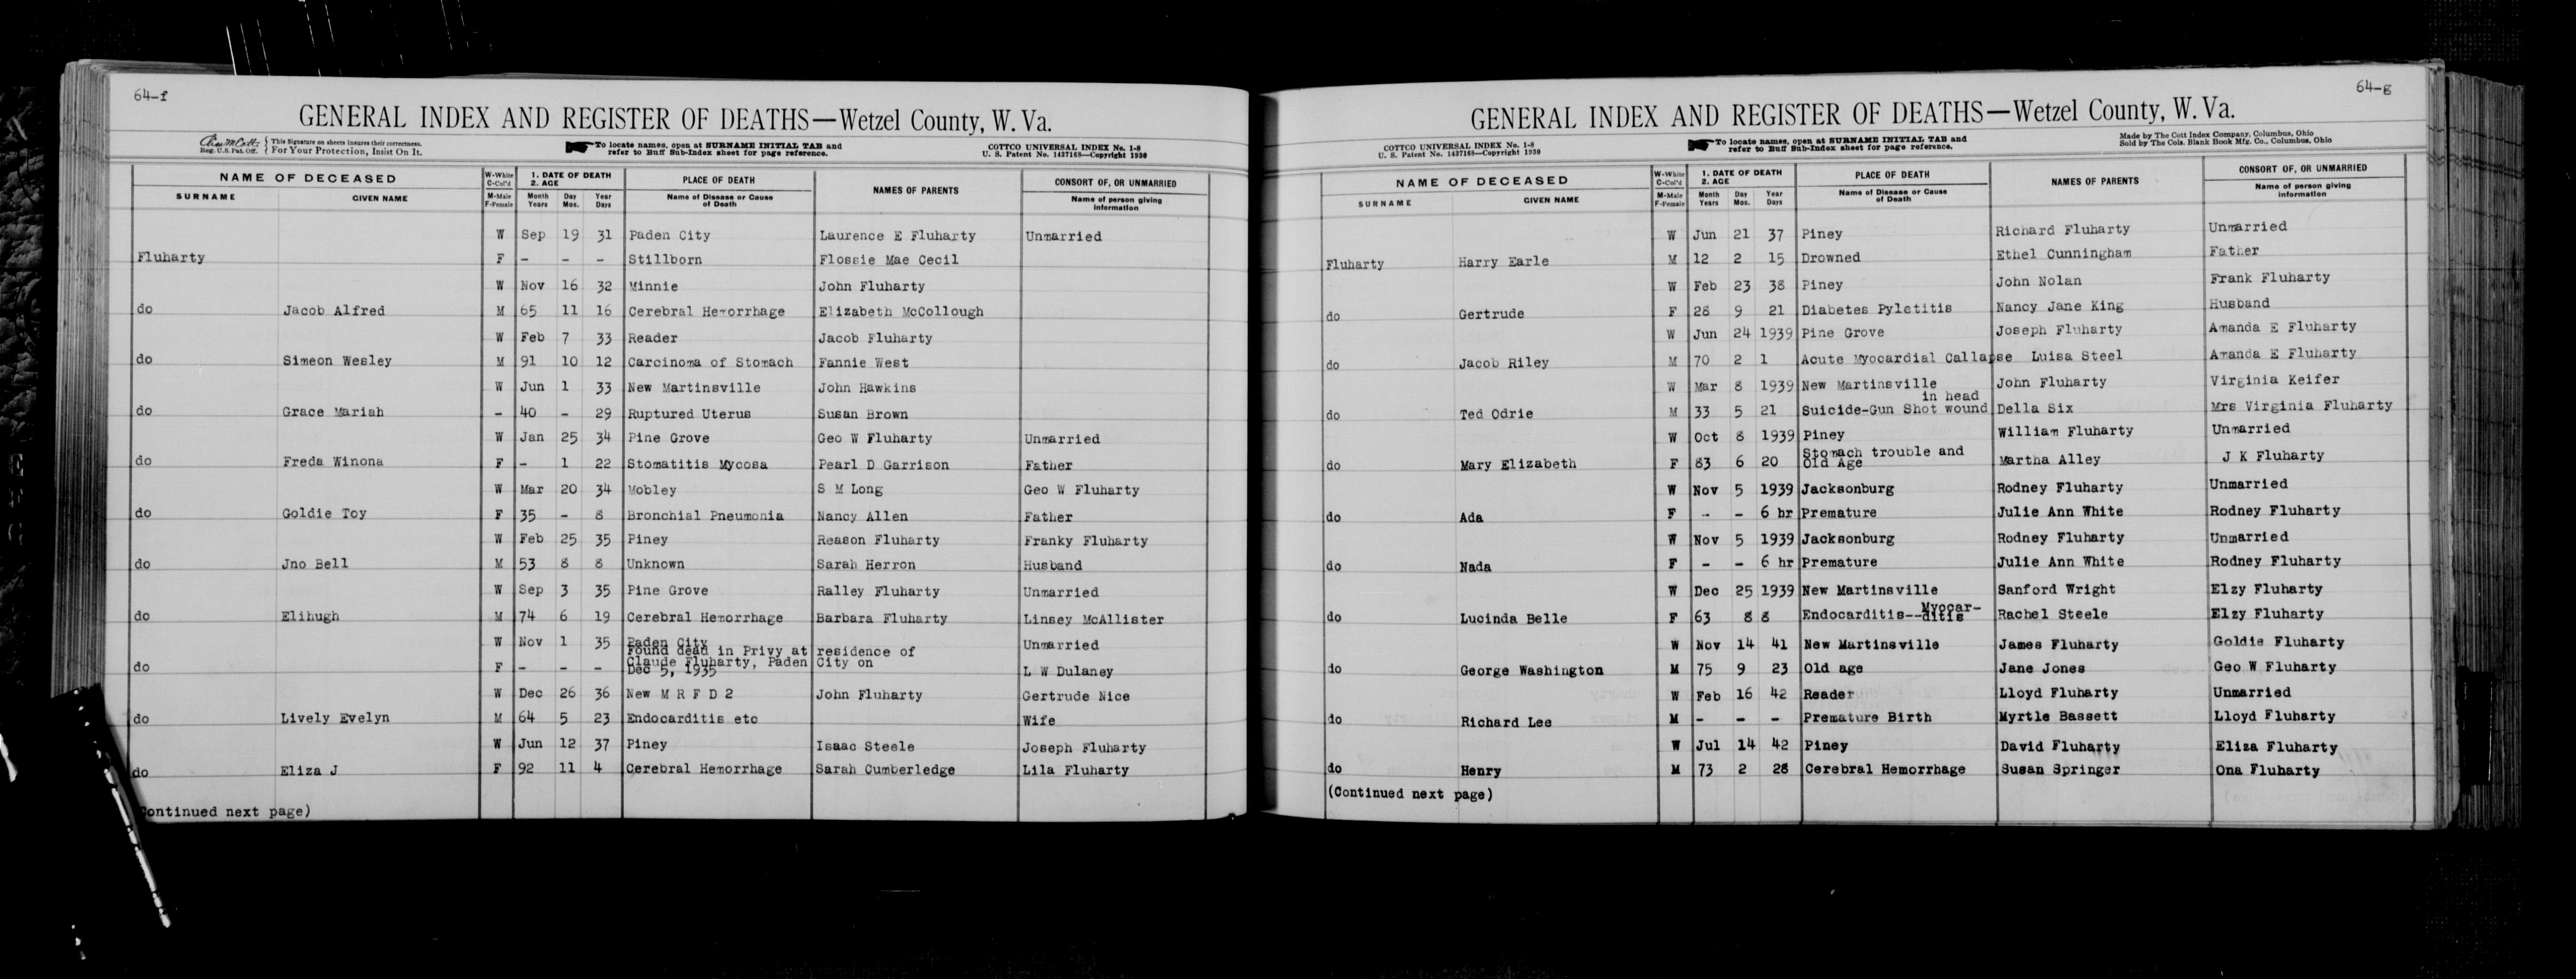 64-f
GENERAL INDEX AND REGISTER OF DEATHS—Wetzel County, W. Va.
Reg. U.S. Pat. Off. { This Signature on sheets insures their correctness. For Your Protection, Insist On It.
To locate names, open at SURNAME INITIAL TAB and refer to Buff Sub-Index sheet for page reference.
COTTCO UNIVERSAL INDEX No. 1-8
U. S. Patent No. 1437168—Copyright 1930
NAME OF DECEASED W-White C-Col'd 1. DATE OF DEATH 2. AGE PLACE OF DEATH NAMES OF PARENTS CONSORT OF, OR UNMARRIED
SURNAME GIVEN NAME M-Male F-Female Month Years Day Mos. Year Days Name of Disease or Cause of Death Name of person giving information
W Sep 19 31 Paden City Laurence E Fluharty Unmarried
Fluharty F - - - Stillborn Flossie Mae Cecil
W Nov 16 32 Minnie John Fluharty
do Jacob Alfred M 65 11 16 Cerebral Hemorrhage Elizabeth McCollough
W Feb 7 33 Reader Jacob Fluharty
do Simeon Wesley M 91 10 12 Carcinoma of Stomach Fannie West
W Jun 1 33 New Martinsville John Hawkins
do Grace Mariah - 40 - 29 Ruptured Uterus Susan Brown
W Jan 25 34 Pine Grove Geo W Fluharty Unmarried
do Freda Winona F - 1 22 Stomatitis Mycosa Pearl D Garrison Father
W Mar 20 34 Mobley S M Long Geo W Fluharty
do Goldie Toy F 35 - 8 Bronchial Pneumonia Nancy Allen Father
W Feb 25 35 Piney Reason Fluharty Franky Fluharty
do Jno Bell M 53 8 8 Unknown Sarah Herron Husband
W Sep 3 35 Pine Grove Ralley Fluharty Unmarried
do Elihugh M 74 6 19 Cerebral Hemorrhage Barbara Fluharty Linsey McAllister
W Nov 1 35 Paden City Unmarried
Found dead in Privy at residence of
do F - - - Claude Fluharty, Paden City on L W Dulaney
Dec 5, 1935
W Dec 26 36 New M R F D 2 John Fluharty Gertrude Nice
do Lively Evelyn M 64 5 23 Endocarditis etc Wife
W Jun 12 37 Piney Isaac Steele Joseph Fluharty
do Eliza J F 92 11 4 Cerebral Hemorrhage Sarah Cumberledge Lila Fluharty
Continued next page)
64-g
GENERAL INDEX AND REGISTER OF DEATHS—Wetzel County, W. Va.
COTTCO UNIVERSAL INDEX No. 1-8
U. S. Patent No. 1437168—Copyright 1930
To locate names, open at SURNAME INITIAL TAB and refer to Buff Sub-Index sheet for page reference.
Made by The Cott Index Company, Columbus, Ohio
Sold by The Cols. Blank Book Mfg. Co., Columbus, Ohio
NAME OF DECEASED W-White C-Col'd 1. DATE OF DEATH 2. AGE PLACE OF DEATH NAMES OF PARENTS CONSORT OF, OR UNMARRIED
SURNAME GIVEN NAME M-Male F-Female Month Years Day Mos. Year Days Name of Disease or Cause of Death Name of person giving information
W Jun 21 37 Piney Richard Fluharty Unmarried
Fluharty Harry Earle M 12 2 15 Drowned Ethel Cunningham Father
W Feb 23 38 Piney John Nolan Frank Fluharty
do Gertrude F 28 9 21 Diabetes Pyletitis Nancy Jane King Husband
W Jun 24 1939 Pine Grove Joseph Fluharty Amanda E Fluharty
do Jacob Riley M 70 2 1 Acute Myocardial Callapse Luisa Steel Amanda E Fluharty
W Mar 8 1939 New Martinsville John Fluharty Virginia Keifer
in head
do Ted Odrie M 33 5 21 Suicide-Gun Shot wound Della Six Mrs Virginia Fluharty
W Oct 8 1939 Piney William Fluharty Unmarried
Stomach trouble and
do Mary Elizabeth F 83 6 20 Old Age Martha Alley J K Fluharty
W Nov 5 1939 Jacksonburg Rodney Fluharty Unmarried
do Ada F - - 6 hr Premature Julie Ann White Rodney Fluharty
W Nov 5 1939 Jacksonburg Rodney Fluharty Unmarried
do Nada F - - 6 hr Premature Julie Ann White Rodney Fluharty
W Dec 25 1939 New Martinsville Sanford Wright Elzy Fluharty
do Lucinda Belle F 63 8 8 Endocarditis--Myocar-ditis Rachel Steele Elzy Fluharty
W Nov 14 41 New Martinsville James Fluharty Goldie Fluharty
do George Washington M 75 9 23 Old age Jane Jones Geo W Fluharty
W Feb 16 42 Reader Lloyd Fluharty Unmarried
do Richard Lee M - - - Premature Birth Myrtle Bassett Lloyd Fluharty
W Jul 14 42 Piney David Fluharty Eliza Fluharty
do Henry M 73 2 28 Cerebral Hemorrhage Susan Springer Ona Fluharty
(Continued next page)